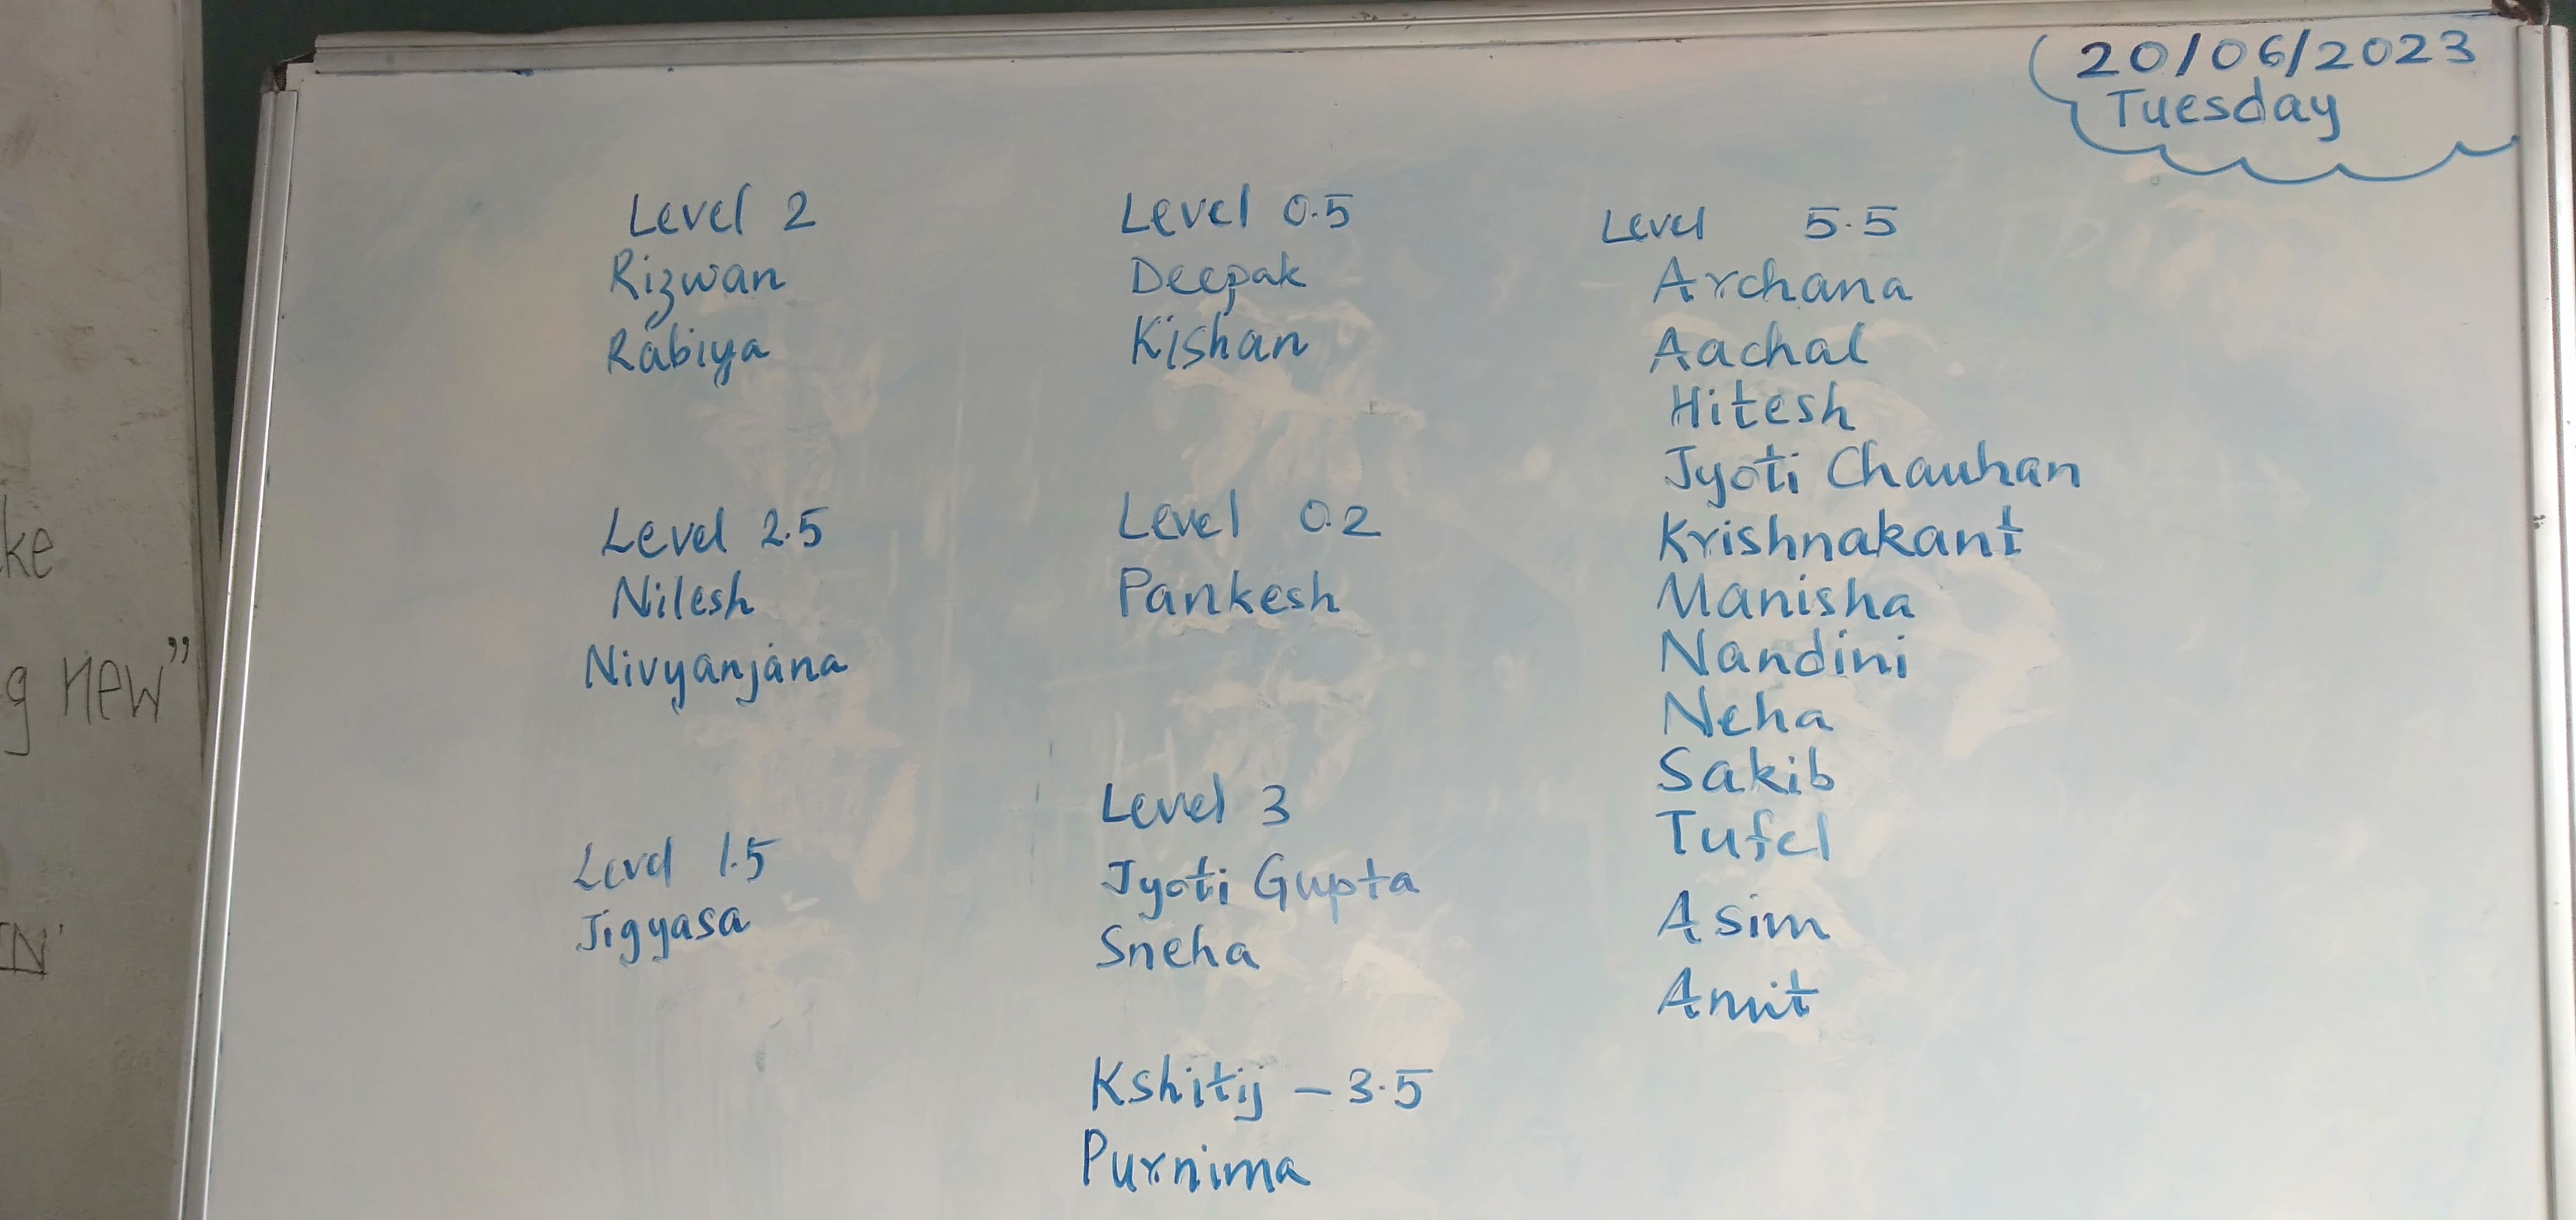 20/06/2023
Tuesday
Level 2
Rizwan
Rabiya
Level 2.5
Nilesh
Nivyanjana
Level 1.5
Jigyasa
Level 0.5
Deepak
Kishan
Level 0.2
Pankesh
Level 3
Jyoti Gupta
Sneha
Kshitij - 3.5
Purnima
Level 5.5
Archana
Aachal
Hitesh
Jyoti Chauhan
Krishnakant
Manisha
Nandini
Neha
Sakib
Tufel
Asim
Amit
ke
g new”
N